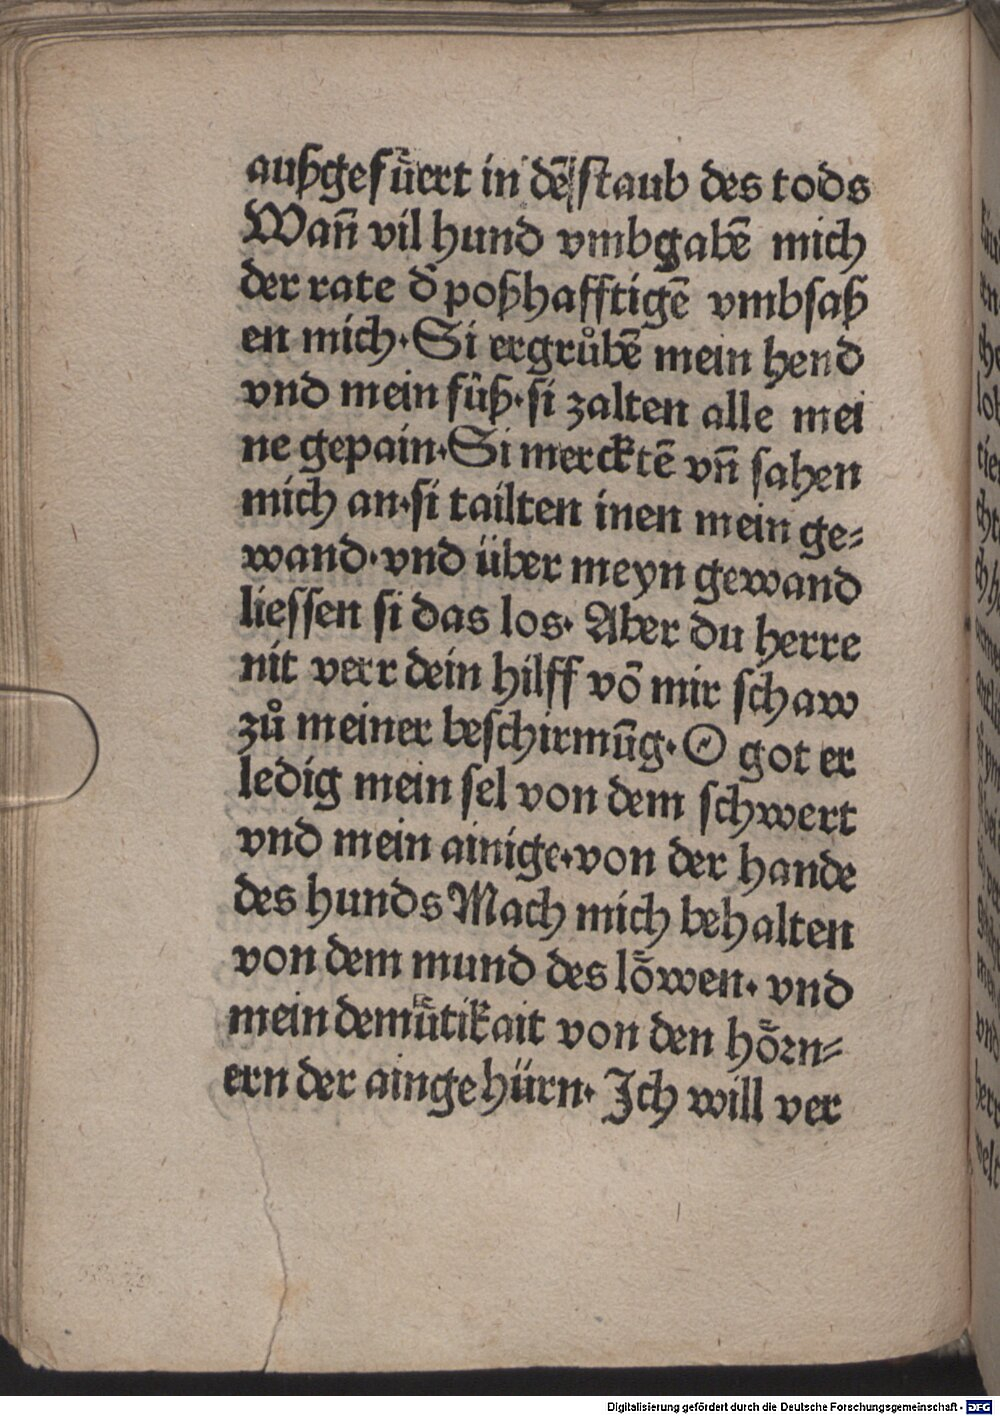 außgefuͤrt in dē staub des tods
Wañ vil hund vmbgabē mich
der rate d̄ poßhafftigē vmbsaß
en mich. Si ergrůbē mein hend
vnd mein fuͤß. si zalten alle mei
ne gepain. Si mercktē vñ sahen
mich an. si tailten inen mein ge⸗
wand. vnd über meyn gewand
liessen si das los. Aber du herre
nit verr dein hilff vō mir schaw
zů meiner beschirmūg. O got er
ledig mein sel von dem schwert
vnd mein ainige. von der hande
des hunds Mach mich behalten
von dem mund des loͤwen. vnd
mein demuͤtikait von den hoͤrn⸗
ern der aingehürn. Ich will ver
Digitalisierung gefördert durch die Deutsche Forschungsgemeinschaft - DFG